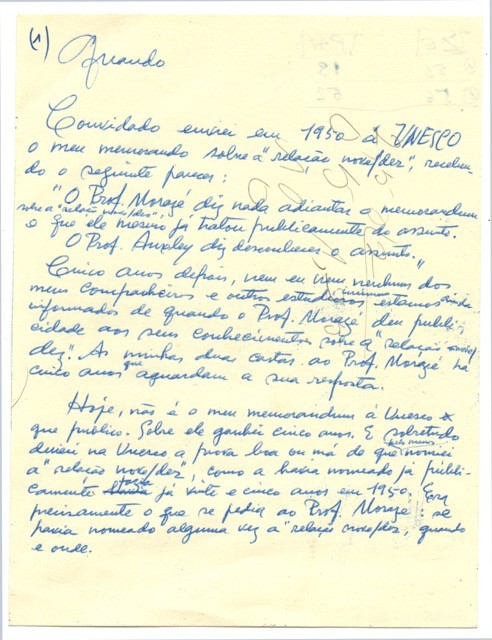 (1)
Quando
Convidado enviei em 1950 à UNESCO
o meu memorando sobre a "relação nove/dez", receben-
do o seguinte parecer:
"O Prof. Morazé diz nada adiantar o memorandum
sobre a "relação nove/dez",
o que ele mesmo já tratou publicamente do assunto.
O Prof. Auxley diz desconhecer o assunto."
Cinco anos depois, nem eu nem nenhum dos
meus companheiros e outros estudiosos estamos ainda
informados de quando o Prof. Morazé deu publi-
cidade aos seus conhecimentos sobre a "relação nove/
dez". As minhas duas cartas ao Prof. Morazé há
cinco anos que aguardam a sua resposta.
Hoje, não é o meu memorandum à Unesco o
que publico. Sobre ele ganhei cinco anos. E sobretudo
deixei na Unesco a prova boa ou má de que pelo menos nomeei
a "relação nove/dez", como a havia nomeado já publi-
camente fazia já vinte e cinco anos em 1950. Era
precisamente o que se pedia ao Prof. Morazé: se
havia nomeado alguma vez a "relação nove/dez", quando
e onde.